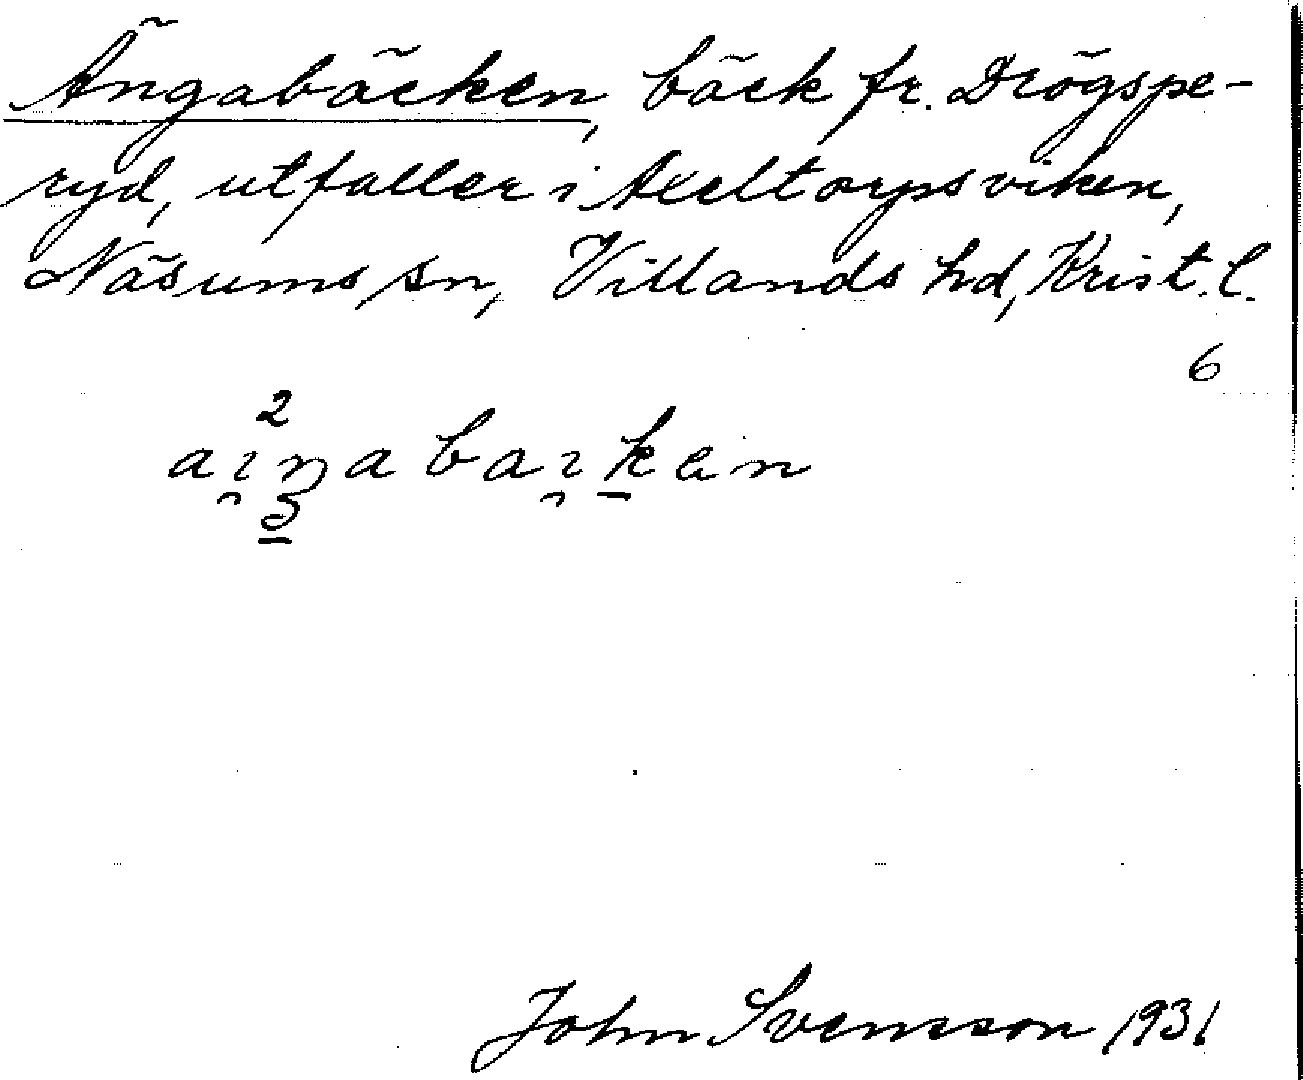 Ängabäcken, bäck fr. Drögspe-
ryd, utfaller i Axeltorpsviken,
Näsums sn, Villands hd, Krist. l.
6
John Svensson 1931